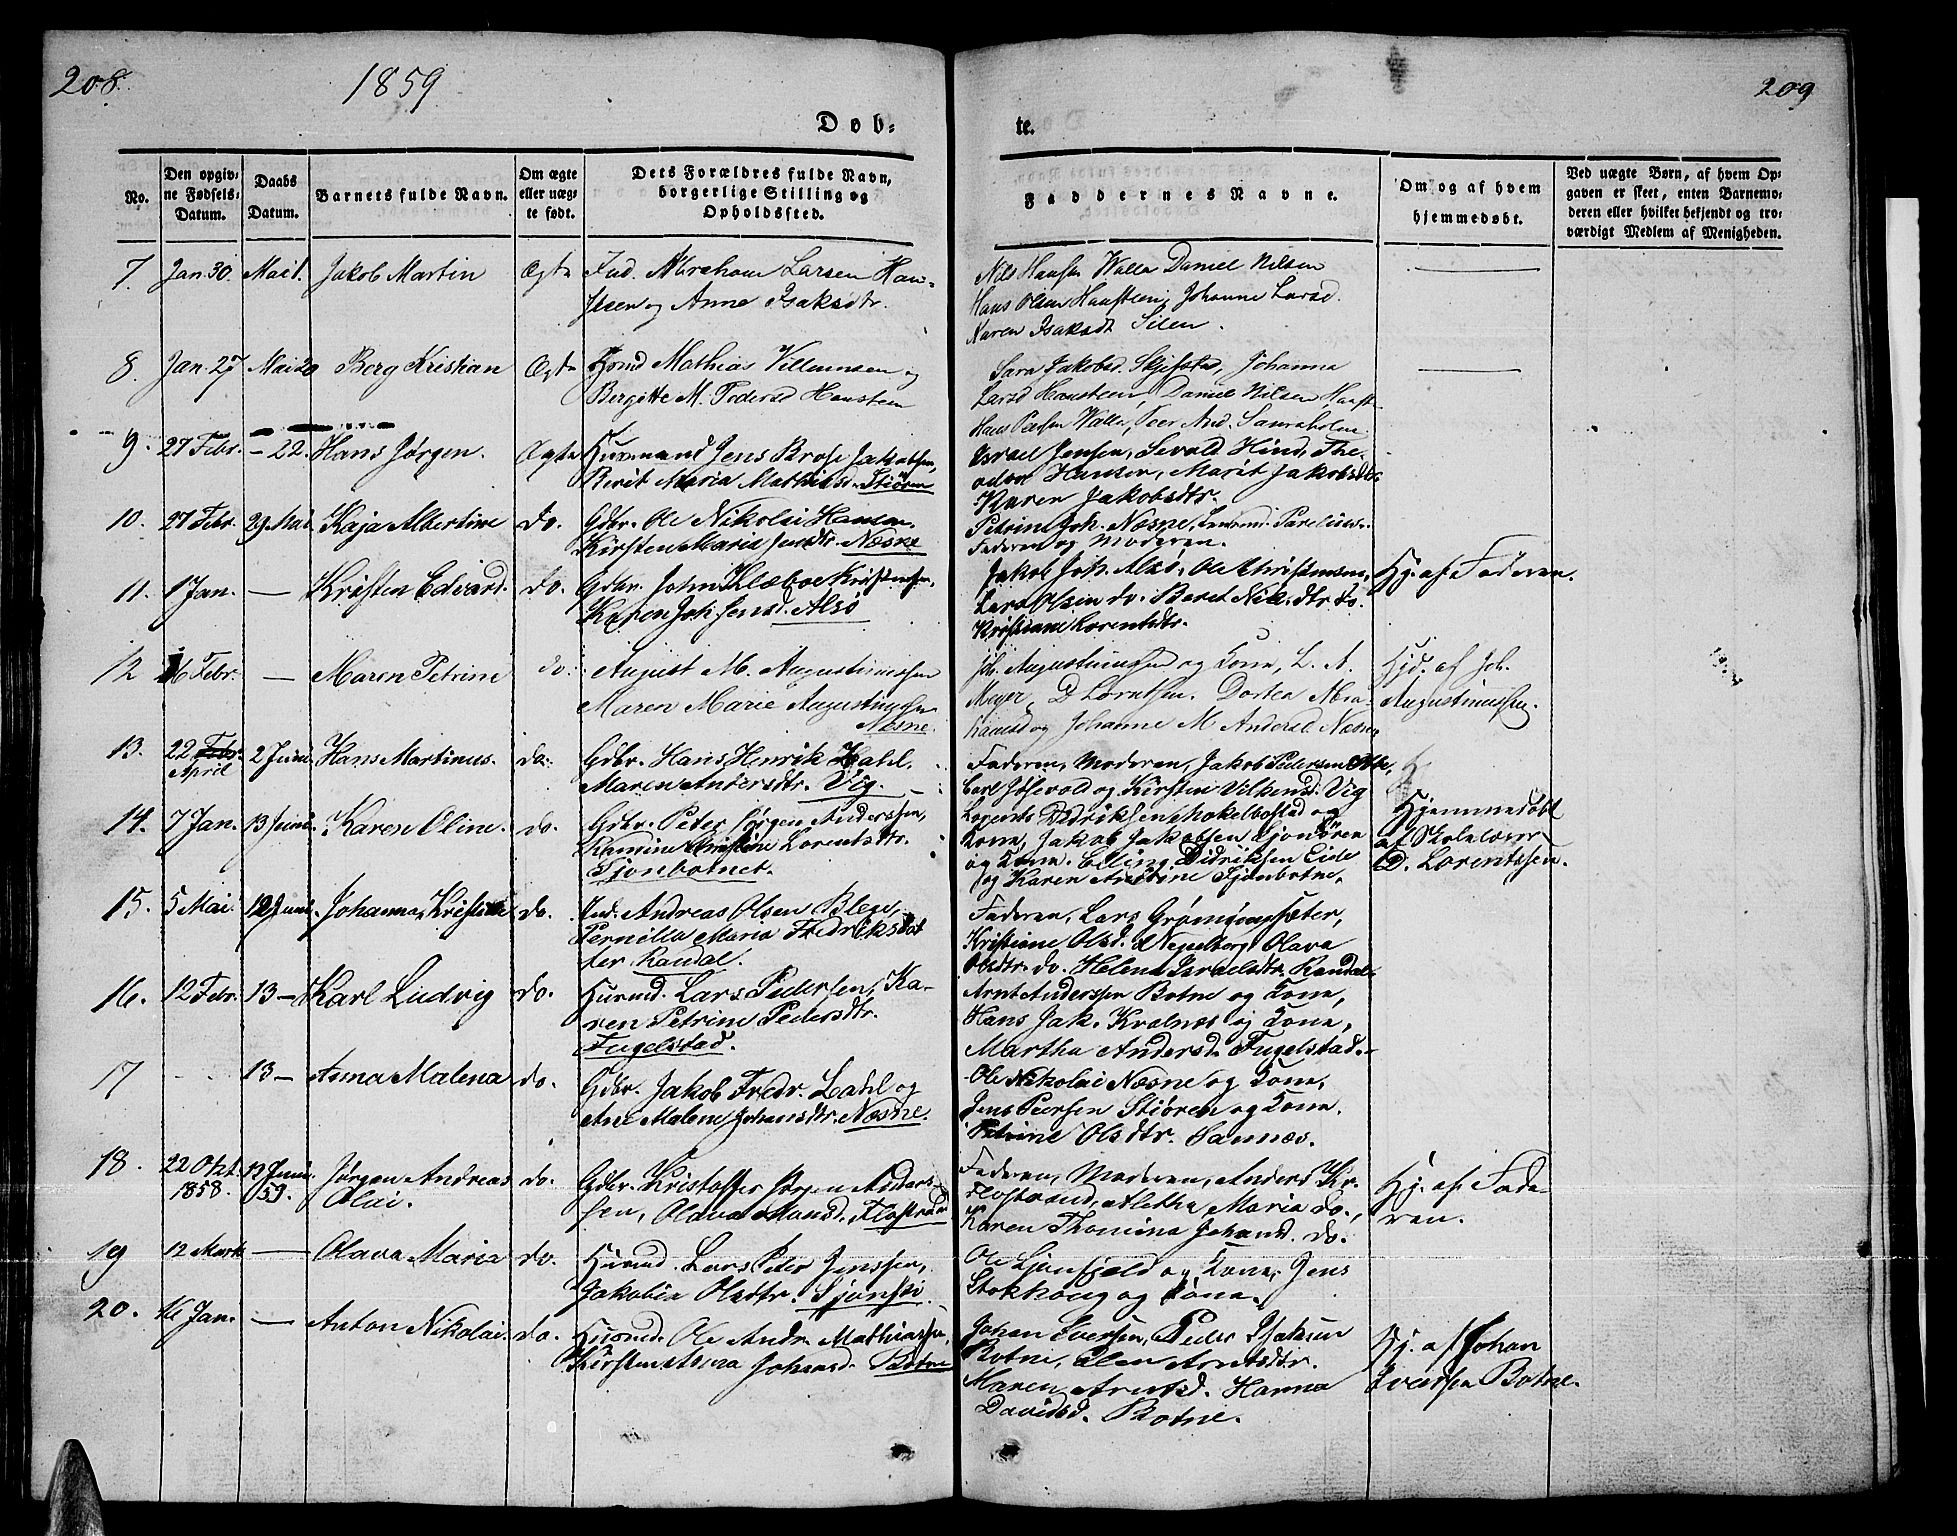 208.
1859
209
Døb-
te.
No.
Den opgiv-
ne Fødsels-
Datum.
Daabs
Datum.
Barnets fulde Navn.
Om ægte
eller uæg-
te født.
Dets Forældres fulde Navn,
borgerlige Stilling og
Opholdssted.
Faddernes Navne.
Om og af hvem
hjemmedøbt.
Ved uægte Børn, af hvem Op-
gaven er skeet, enten Barnemo-
deren eller hvilket bekjendt og tro-
værdigt Medlem af Menigheden.
7. Jan. 30. Mai 1. Jakob Martin Ægte Ind. Abraham Larsen Han-
steen og Anne Isaksdtr.
Nils Hansen Walla Daniel Nilsen
Hans Olsen Hansteen, Johanne Larsd.
Karen Isaksdt Silen.
8. Jan. 27 Mai 20 Berg Kristian Ægte Hsmd Mathias Villumsen og
Bergitte M. Pedersd Hansteen
Sara Jakobsd. Johanna
Larsd Hansteen, Daniel Nilsen Hanst.
Hans Petersen Walla, Peer And.
9. 27 Febr. - 22. Hans Jørgen. Ægte Huusmand Jens Brose Jakobsen,
Berit Maria Mathiasd. Stiøren
Israel Jensen, Sevald Hind, The-
odor Hansen, Marit Jakobsdtr.
Karen Jakobsdtr.
10. 27 Febr. 29 Mai. Kaja Albertine do. Gdbr. Ole Nikolai Hansen
Kirsten Maria Jensdtr. Næsne
Petrine Joh. Næsne, Parelius.
Faderen og Moderen.
11. 1 Jan. — Kristen Edvard. do. Gdbr. John Klæboe Kristensen,
Karen Joh Jensd. Alsø
Jakob Joh. Alsø, Ole Christensen,
Lars Olsen do. Beret Nils.dtr. do.
Kristiane Lorentsdtr.
Hj. af Faderen.
12 16 Febr. — Maren Petrine do. August M. Augustinussen
Maren Marie Augustinussen
Næsne.
Joh. Augustinussen og Kone, L. A.
Meyer, D Lorntsen. Dortea Abra-
hamsd og Johanne M Andersd. Næsne
Hjd. af Joh.
Augustinussen.
13. 22 Febr.
April 2 Juni. Hans Martinus. do. Gdbr. Hans Henrik Zahl.
Maren Andersdtr. Vig.
Faderen, Moderen, Jakob Pedersen
Carl Jøsevold og Kirsten Vilhemsd. Vig
14. 7 Jan. 13 Juni. Karen Oline. do. Gdbr. Peter Jørgen Anderssen,
Christine Lorentsdtr.
Sjonbotnet.
Lorents Didriksen Mokelbostad og
Kone, Jakob Jakobsen Sjonøren
og Kone. Elling Didriksen Eide
og Karen Anstine Sjonbotne.
Hjemmedøbt
af Skolelærer
D. Lorentssen.
15. 5 Mai. 12 Juni. Johanna Kristine do. Ind. Andreas Olsen
Pernilla Maria Fredriksdat
ter Randal.
Faderen, Lars
Kristiane Olsd. Olava
Olsdtr. do. Helena Israelsdtr. Randal.
16. 12 Febr. 13 — Karl Ludvig do. Husmd. Lars Pedersen, Ka-
ren Petrine Pedersdtr.
Fugelstad.
Arnt Anderssen Botne og Kone,
Hans Jak. Kvalnæs og Kone,
Martha Andersd. Fugelstad.
17 13 — Anna Malena do. Gdbr. Jakob Fredr. Zahl og
Ane Malene Johansdtr. Næsne.
Ole Nikolai Næsne og Kone,
Jens Peersen Stiøren og Kone.
Petrine Olsdtr. Sannæs.
18. 22 Okt.
1858. 13 Juni
59. Jørgen Andreas
Olai. do. Gdbr. Kristoffer Jørgen Anders-
sen, Olava Monsd. Flostrand
Faderen, Moderen, Anders Kr.
Flostrand, Aletha Maria do.,
Karen Thomina Johansd. do.
Hj. af Fade-
ren.
19 12 Marts — Olava Maria do. Husmd. Lars Peter Jenssen,
Jakobia Olsdtr.
Ole og Kone, Jens
Stokhaug og Kone.
20. 16 Jan. — Anton Nikolai. do. Husmd. Ole Andr. Mathiassen,
Kirsten Johansd. Botne
Johan Iversen, Peder Isaksen
Botne, Elen Arntsdtr.
Maren Arntsd. Hanna
Davidsd. Botne.
Hj. af Johan
Iversen Botne.